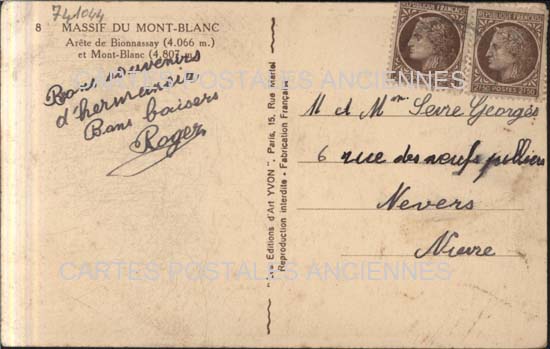 741044
8 MASSIF DU MONT-BLANC
Arête de Bionnassay (4.066 m.)
et Mont-Blanc (4.807 m.)
Bons souvenirs
d'hermance
Bons baisers
Roger
"Les Editions d'Art YVON", Paris, 15, Rue Martel
Reproduction interdite - Fabrication Française
REPUBLIQUE FRANÇAISE
2F50 POSTES 2F50
REPUBLIQUE FRANÇAISE
2F50 POSTES 2F50
M et Mme Serre Georges
6 rue des neufs pilliers
Nevers
Nievre
CARTES POSTALES ANCIENNES